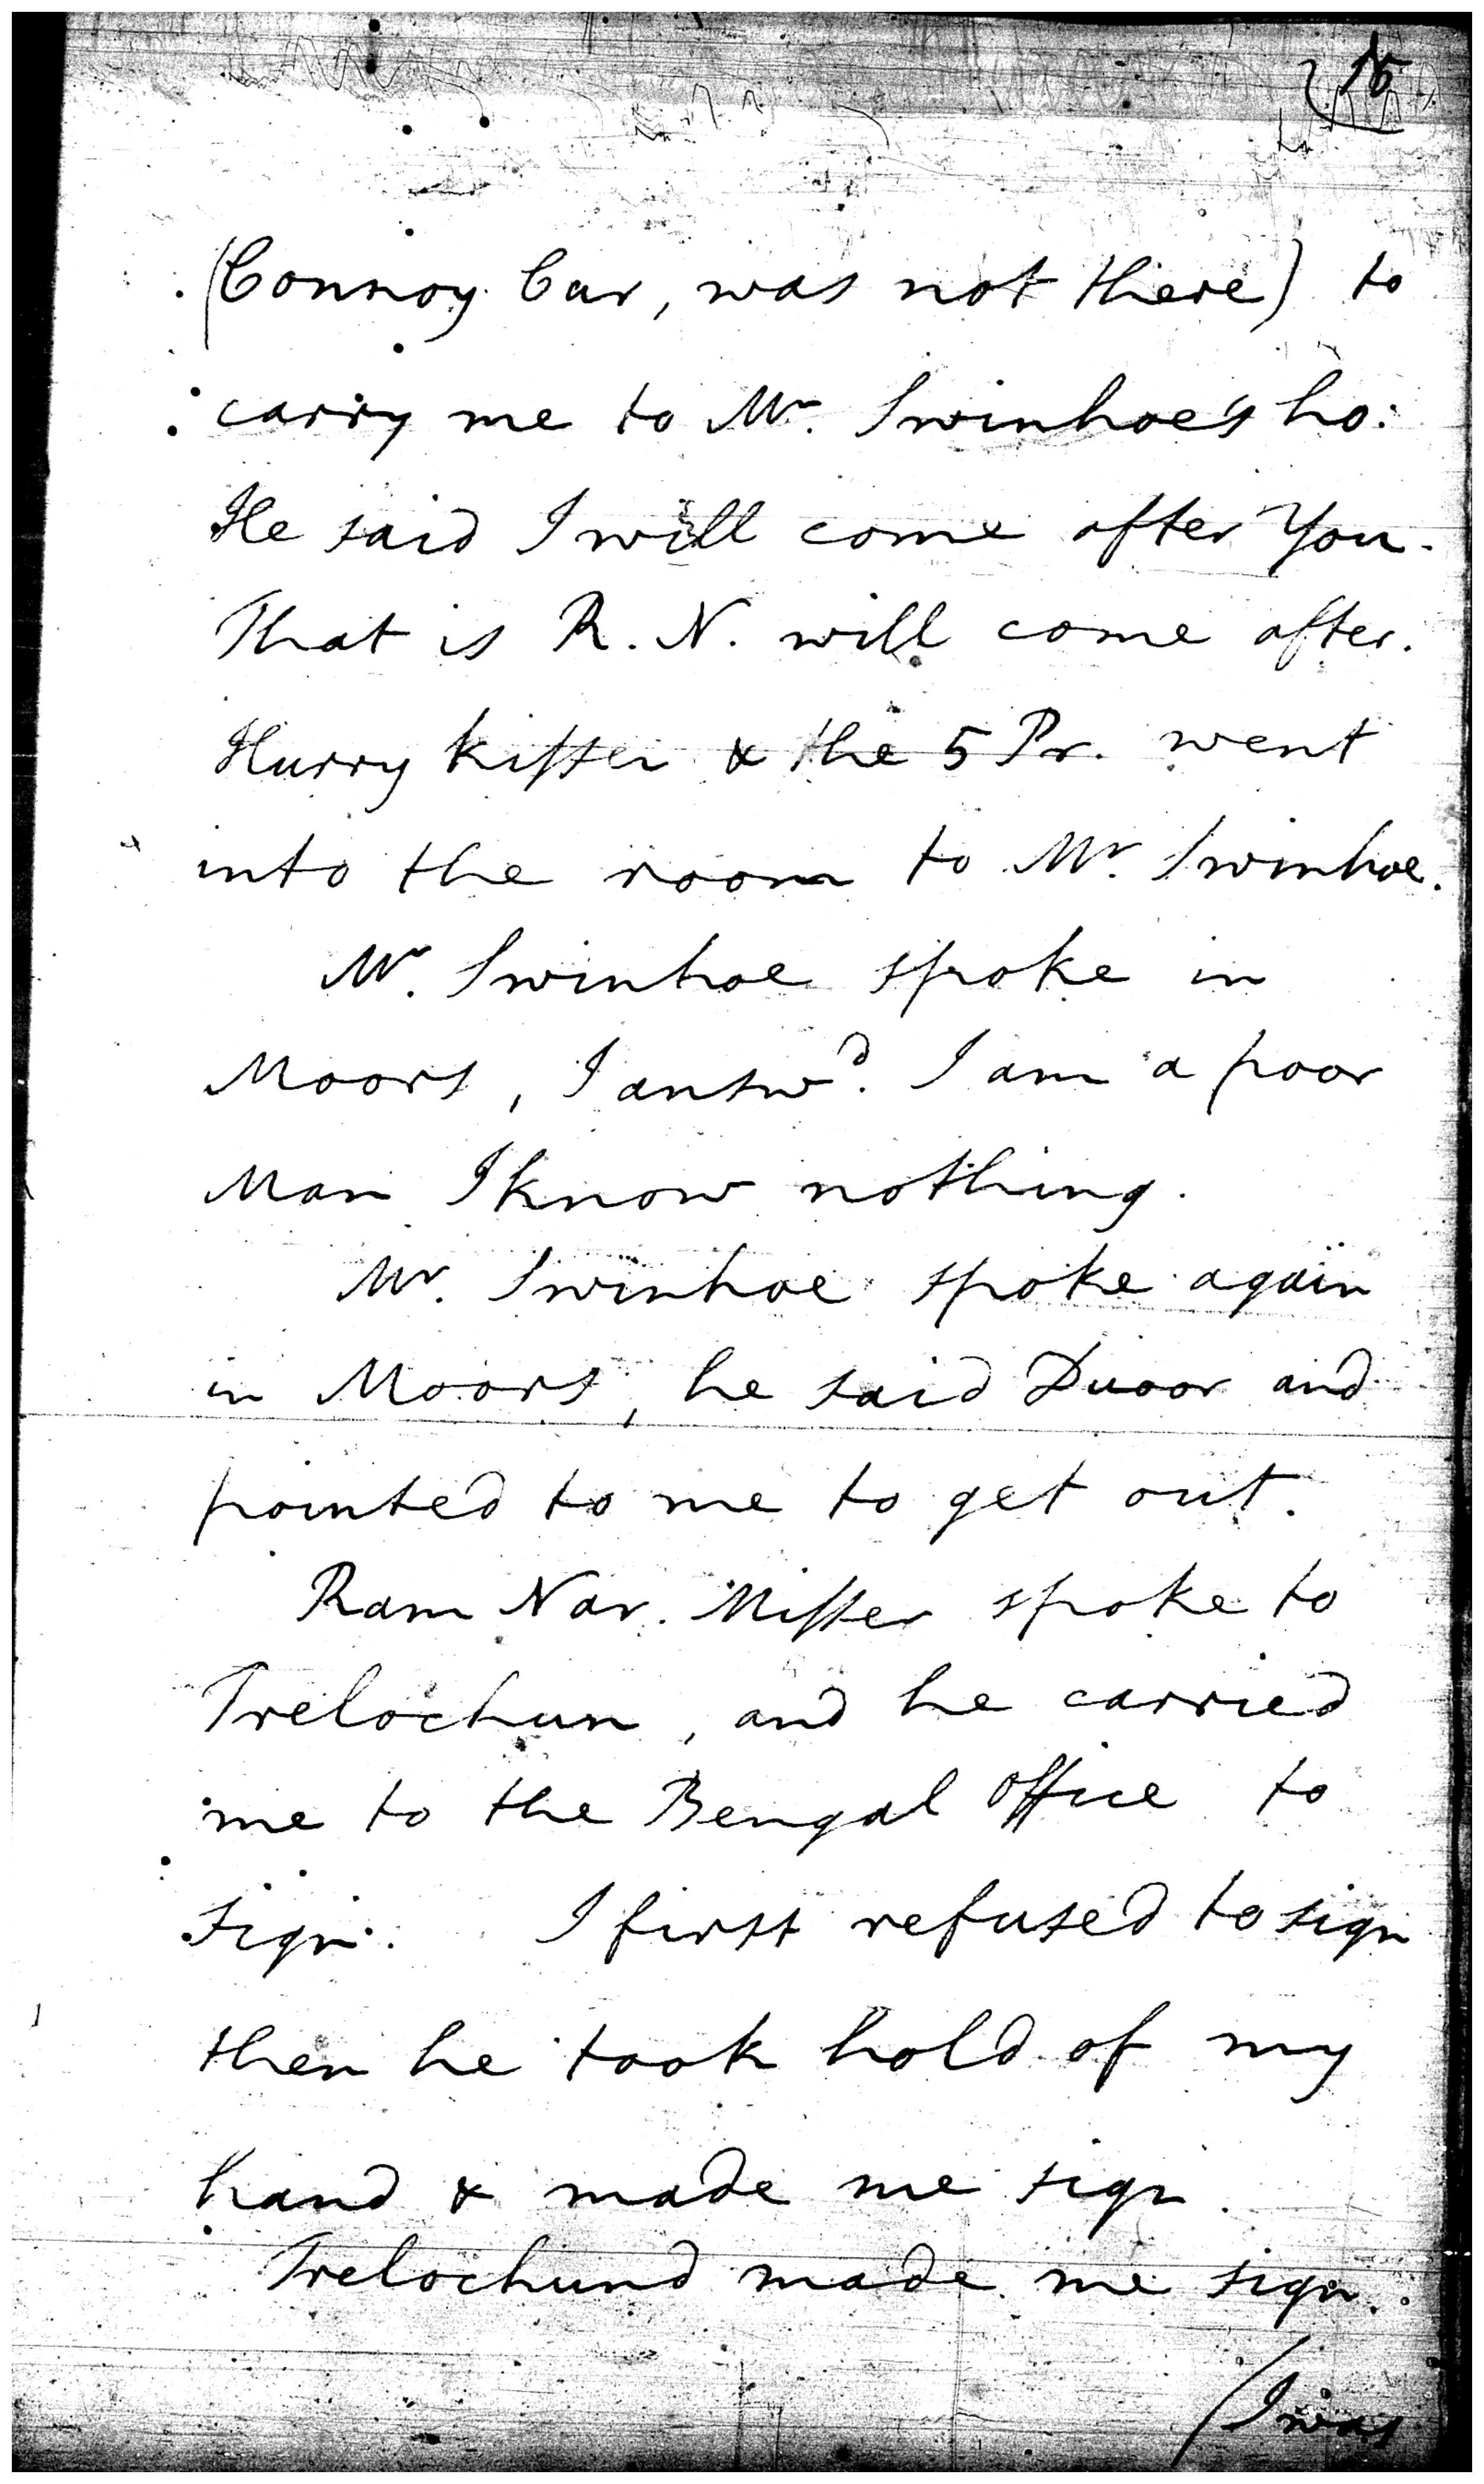 15
(Connoy Car, was not there) to
carry me to Mr. Swinhoe's ho:
He said I will come after You.
That is R. N. will come after.
Hurry Kisser & the 5 Pr. went
into the room to Mr. Swinhoe.
Mr. Swinhoe spoke in
Moors, I answd. I am a poor
Man I know nothing.
Mr. Swinhoe spoke again
in Moors, he said Duoor and
pointed to me to get out.
Ram Nar. Misser spoke to
Trelochun, and he carried
me to the Bengal Office to
sign. I first refused to sign
then he took hold of my
hand & made me sign.
Trelochund made me sign.
/I was